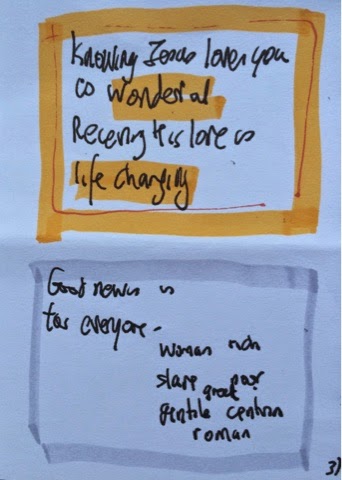 Knowing Jesus loves you
is wonderful
Receving his love is
life changing
Good news is
for everyone -
woman rich
slave poor
greek
gentile centurion
roman
3)